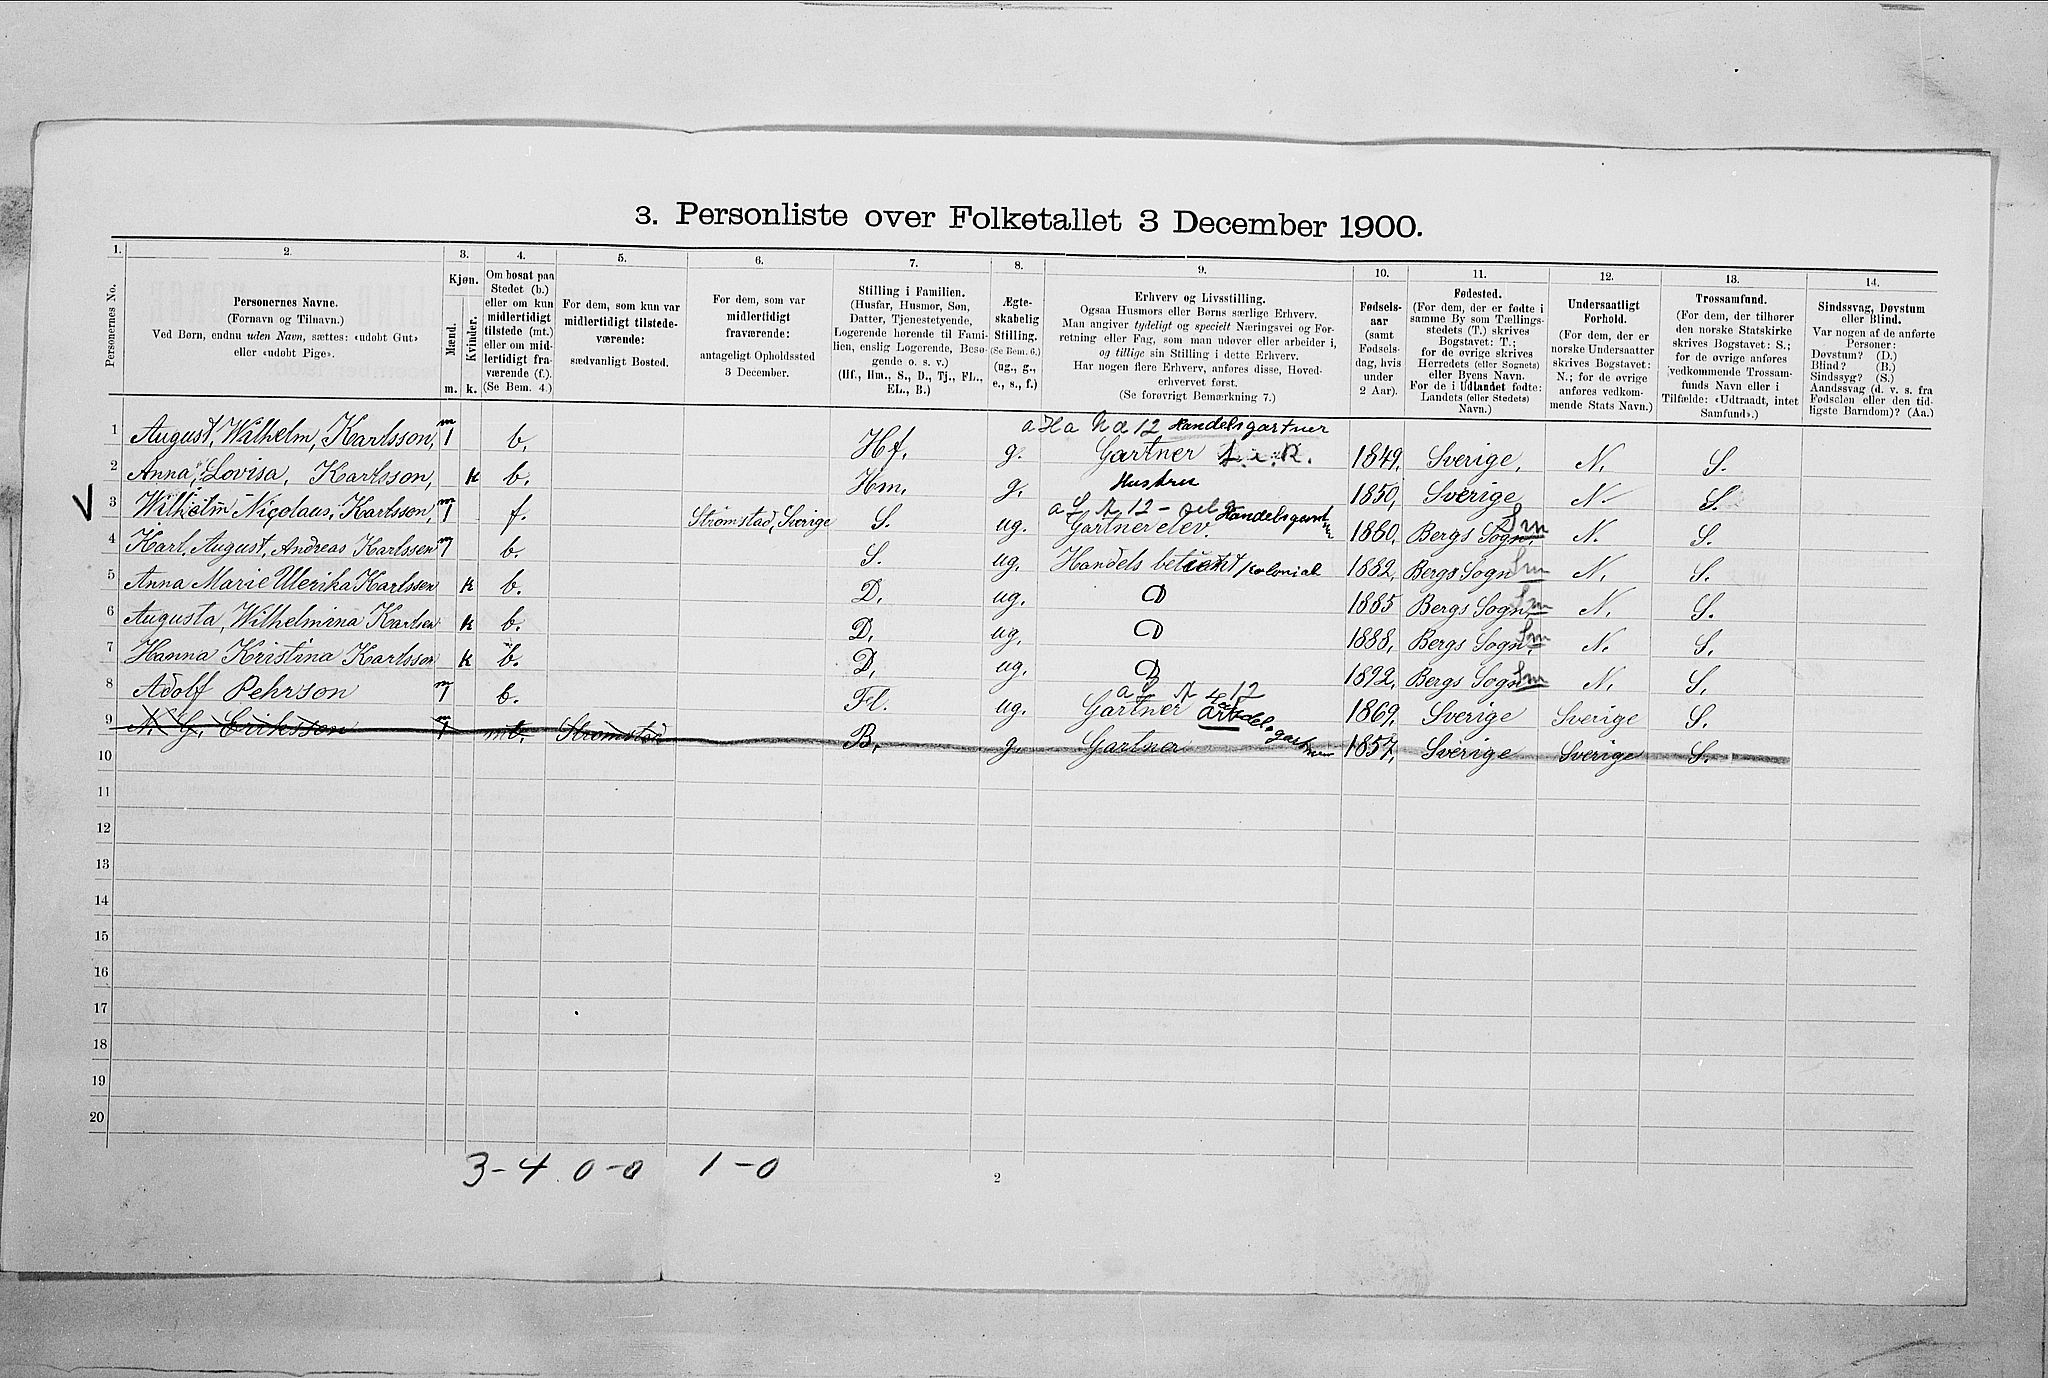 3. Personliste over Folketallet 3 December 1900.
1. 2. 3. 4. 5. 6. 7. 8. 9. 10. 11. 12. 13. 14.
Personernes No.
Personernes Navne.
(Fornavn og Tilnavn.)
Ved Børn, endnu uden Navn, sættes: «udøbt Gut»
eller «udøbt Pige».
Kjøn.
Mænd.
Kvinder.
m. k.
Om bosat paa
Stedet (b.)
eller om kun
midlertidigt
tilstede (mt.)
eller om mid-
lertidigt fra-
værende (f.).
(Se Bem. 4.)
For dem, som kun var
midlertidigt tilstede-
værende:
sædvanligt Bosted.
For dem, som var
midlertidigt
fraværende:
antageligt Opholdssted
3 December.
Stilling i Familien.
(Husfar, Husmor, Søn,
Datter, Tjenestetyende,
Logerende hørende til Fami-
lien, enslig Logerende, Besø-
gende o. s. v.)
(Hf., Hm., S., D., Tj., FL.,
EL., B.)
Ægte-
skabelig
Stilling.
(Se Bem. 6.)
(ug., g.,
e., s., f.)
Erhverv og Livsstilling.
Ogsaa Husmors eller Børns særlige Erhverv.
Man angiver tydeligt og specielt Næringsvei og For-
retning eller Fag, som man udøver eller arbeider i,
og tillige sin Stilling i dette Erhverv.
Har nogen flere Erhverv, anføres disse, Hoved-
erhvervet først.
(Se forøvrigt Bemærkning 7.)
Fødsels-
aar
(samt
Fødsels-
dag, hvis
under
2 Aar).
Fødested.
(For dem, der er fødte i
samme By som Tællings-
stedets (T.) skrives
Bogstavet: T.;
for de øvrige skrives
Herredets (eller Sognets)
eller Byens Navn.
For de i Udlandet fødte:
Landets (eller Stedets)
Navn.)
Undersaatligt
Forhold.
(For dem, der er
norske Undersaatter
skrives Bogstavet:
N.; for de øvrige
anføres vedkom-
mende Stats Navn.)
Trossamfund.
(For dem, der tilhører
den norske Statskirke
skrives Bogstavet: S.;
for de øvrige anføres
vedkommende Trossam-
funds Navn eller i
Tilfælde: «Udtraadt, intet
Samfund».)
Sindssvag, Døvstum
eller Blind.
Var nogen af de anførte
Personer:
Døvstum? (D.)
Blind? (B.)
Sindssyg? (S.)
Aandssvag (d. v. s. fra
Fødselen eller den tid-
ligste Barndom)? (Aa.)
Handelsgartner
1 August, Wilhelm, Karlsson, m 1 b. Hf. g. Gartner 1849, Sverige, N. S.
2 Anna, Lovisa, Karlsson, k b. Hm. g. Hustru 1850, Sverige N. S.
3 Wilhelm Nicolaus, Karlsson, m 1 f. Strømstad, Sverige S. ug. Gartner elev. Handelsgartn 1860, Bergs Sogn. Sm N. S.
4 Karl, August, Andreas Karlssen m 1 b. S. ug. Handels betjent Kolonial 1882, Bergs Sogn Sm N. S.
5 Anna Marie Ulerika Karlssen k b. D. ug. D 1885 Bergs Sogn, Sm N. S.
6 Augusta, Wilhelmina Karlsen k b. D. ug. D 1888, Bergs Sogn, Sm N. S.
7 Hanna Kristina Karlsson k b. D. ug. D 1892, Bergs Sogn Sm N. S.
8 Adolf Pehrson m 1 b. Fl. ug. Gartner 1869, Sverige Sverige S.
9 N. G. Eriksson m 1 mt. Strømstad B. g. Gartner 1857, Sverige Sverige S.
10
11
12
13
14
15
16
17
18
19
20
3-4 0-0 1-0
2